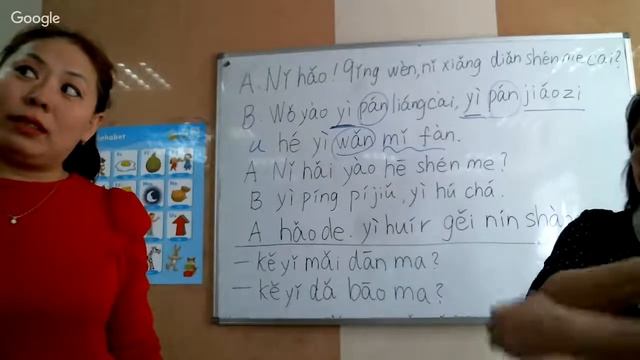 Google
A. Nǐ hǎo! Qǐng wèn, nǐ xiǎng diǎn shén me cài?
B. Wǒ yào yì pán liángcài, yì pán jiǎozi
и hé yì wǎn mǐ fàn.
A Nǐ hái yào hē shén me?
B yì píng píjiǔ, yì hú chá.
A hǎo de. yì huír gěi nín shà
– kě yǐ mǎi dān ma?
– kě yǐ dǎ bāo ma?